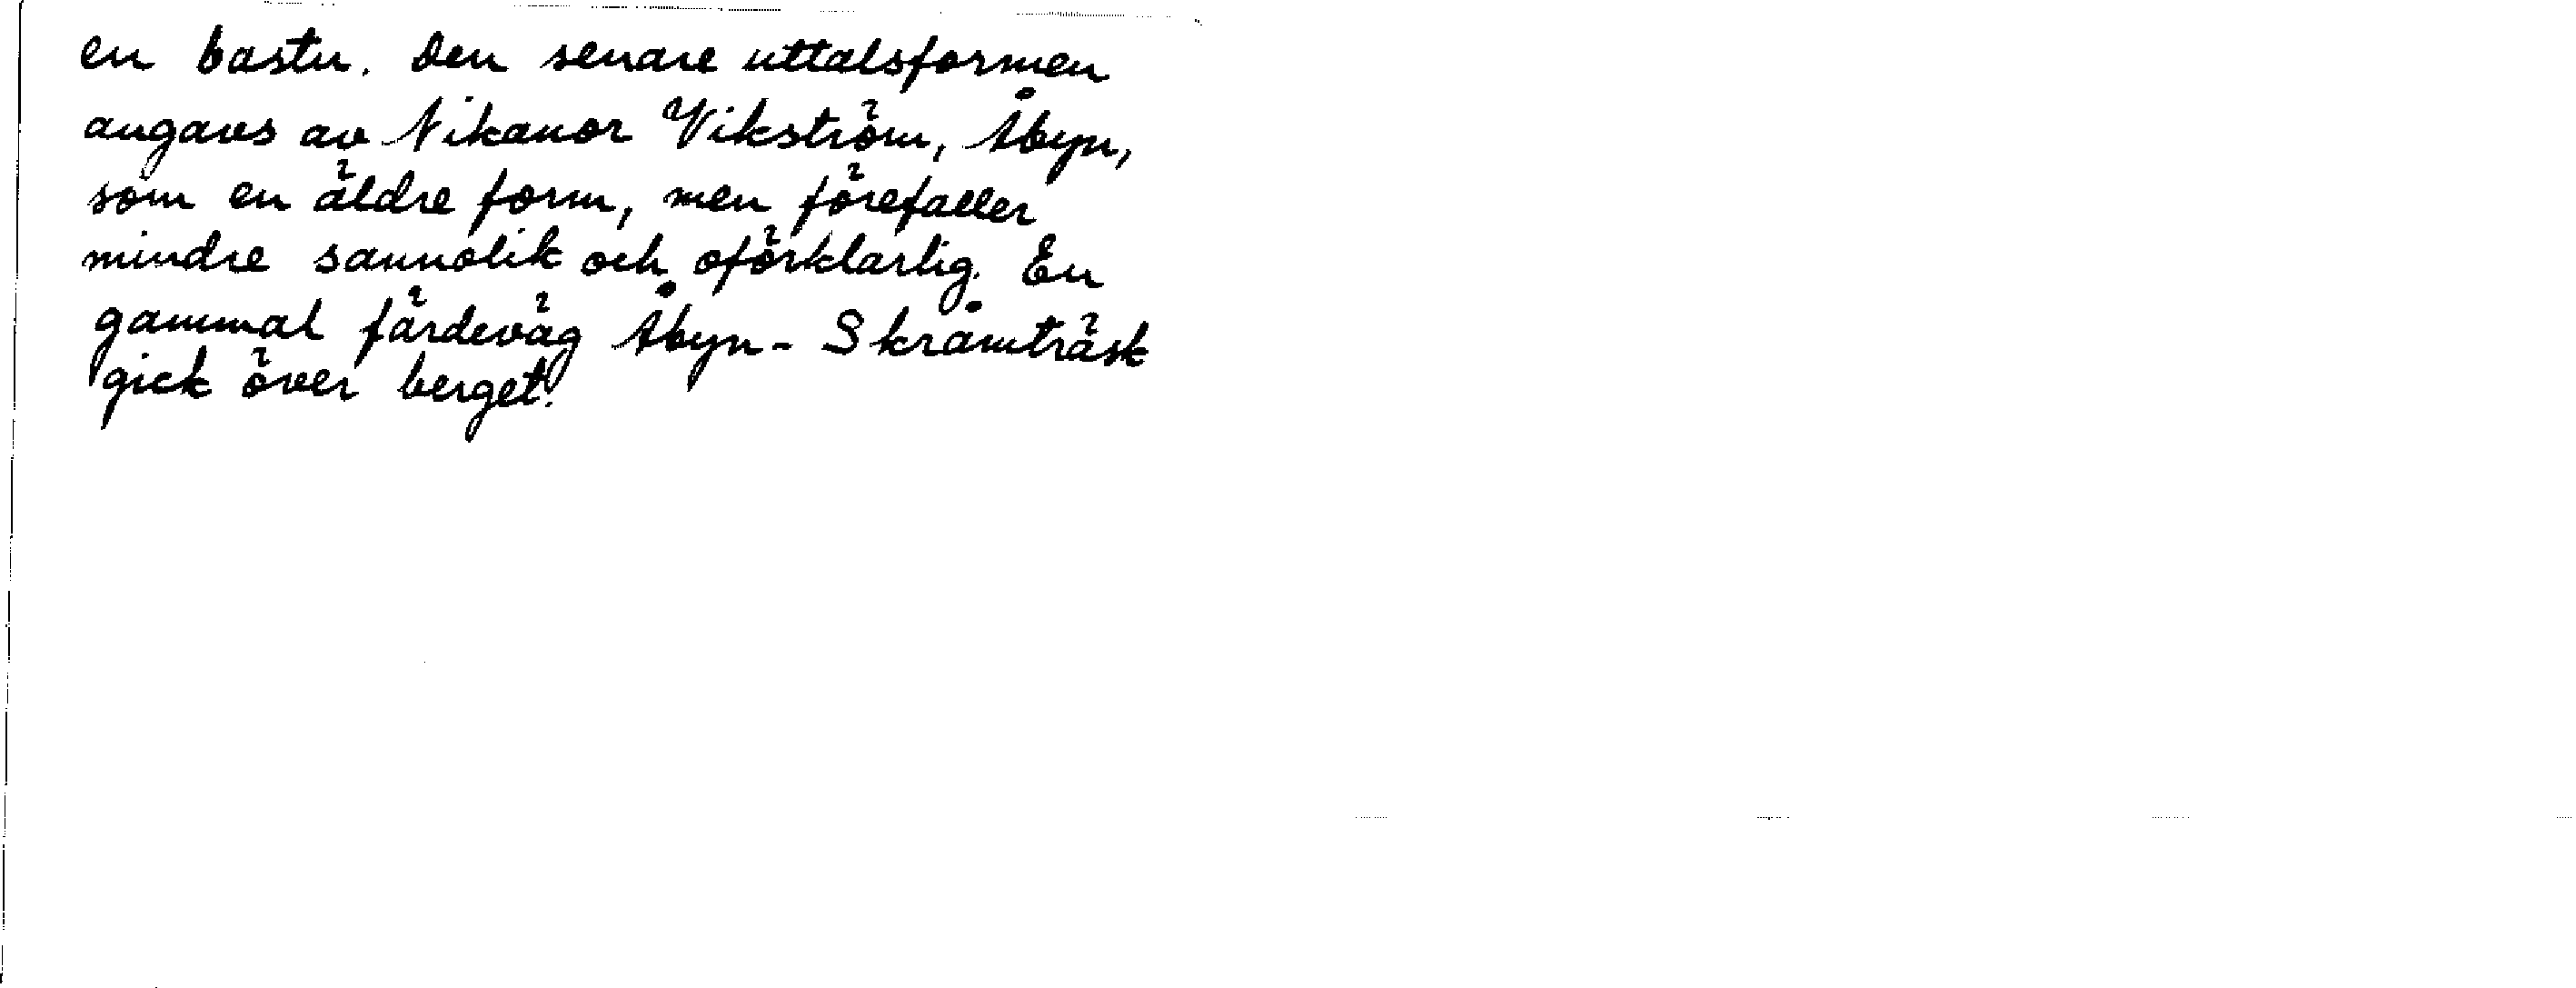 en bastu. Den senare uttalsformen
angavs av Nikanor Vikström, Åbyn,
som en äldre form, men förefaller
mindre sannolik och oförklarlig. En
gammal färdeväg Åbyn - Skråmträsk
gick över berget.